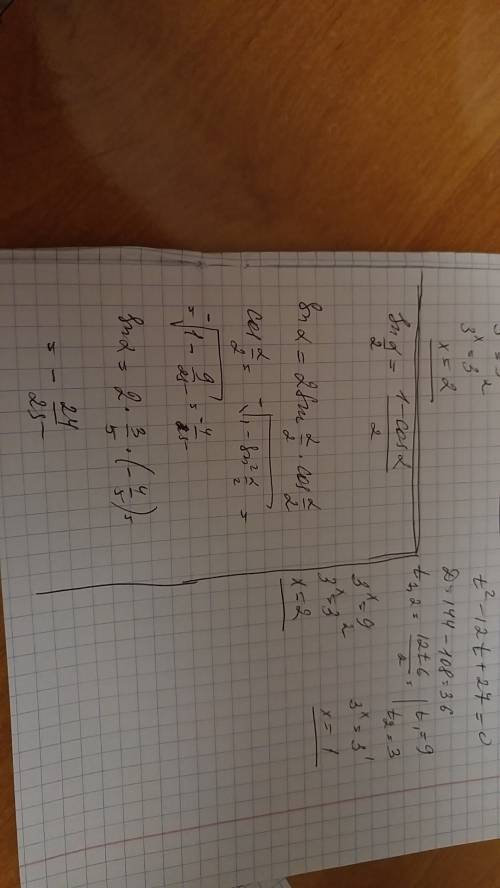 3ˣ = 3²
x = 2
sin α/2 = (1 - cos α)/2
sin α = 2 sin α/2 · cos α/2
cos α/2 = -√(1 - sin² α/2) =
= -√(1 - 9/25) = -4/25
sin α = 2 · 3/5 · (-4/5) =
= - 24/25
t² - 12t + 27 = 0
D = 144 - 108 = 36
t₁,₂ = (12 ± 6)/2 = | t₁ = 9
t₂ = 3
3ˣ = 9
3ˣ = 3²
x = 2
3ˣ = 3¹
x = 1